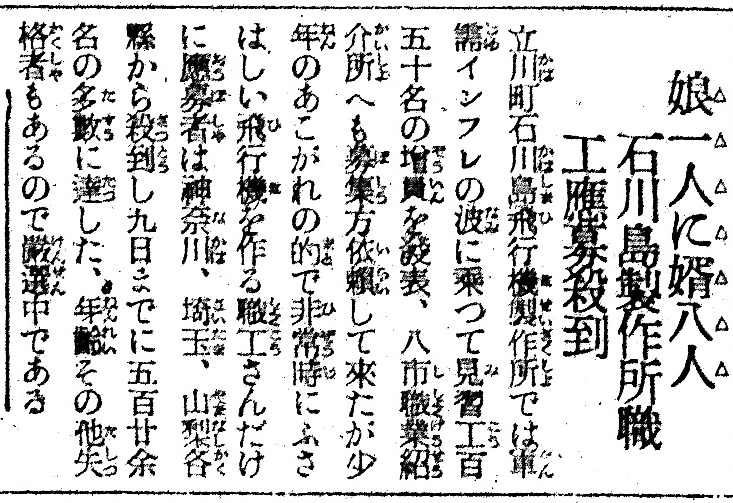 娘一人に婿八人
石川島製作所職
工應募殺到
立川町石川島飛行機製作所では軍
需インフレの波に乘つて見習工百
五十名の増員を發表、八市職業紹
介所へも募集方依頼して來たが少
年のあこがれの的で非常時にふさ
はしい飛行機を作る職工さんだけ
に應募者は神奈川、埼玉、山梨各
縣から殺到し九日までに五百廿余
名の多數に達した、年齡その他失
格者もあるので嚴選中である